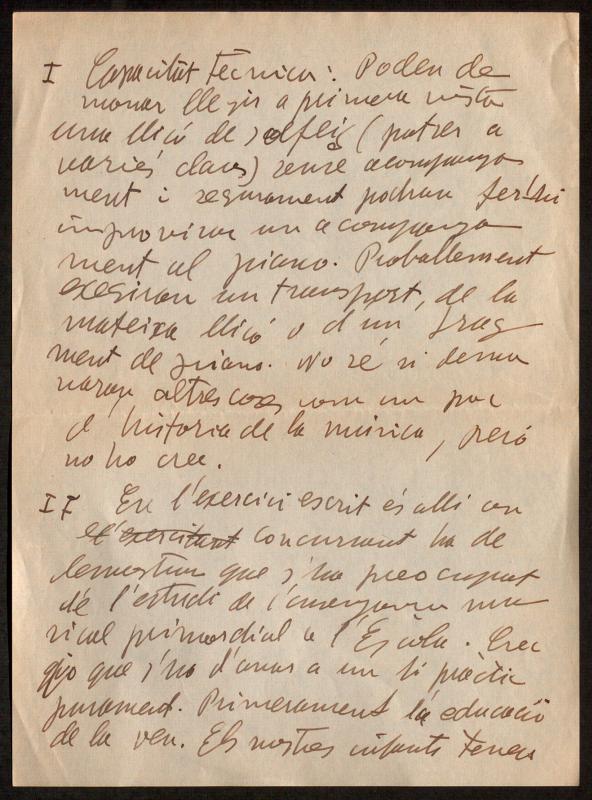 I Capacitat tècnica: Poden de
manar llegir a primera vista
una lliçó de solfeig (potser a
varies claus) sense acompanya
ment i segurament podran fer-hi
improvisar un acompanya
ment al piano. Probablement
exegiran un transport, de la
mateixa lliçó o d'un frag
ment de piano. No sé si dema
naran altres coses com un poc
d'historia de la música, però
no ho crec.
II En l'exercici escrit és allí on
el'exercitant concursant ha de
demostrar que s'ha preocupat
de l'estudi de l'ensenyança mu
sical primordial a l'Escola. Crec
jo que s'ha d'anar a un fi pràctic
purament. Primerament la educació
de la veu. Els nostres infants tenen